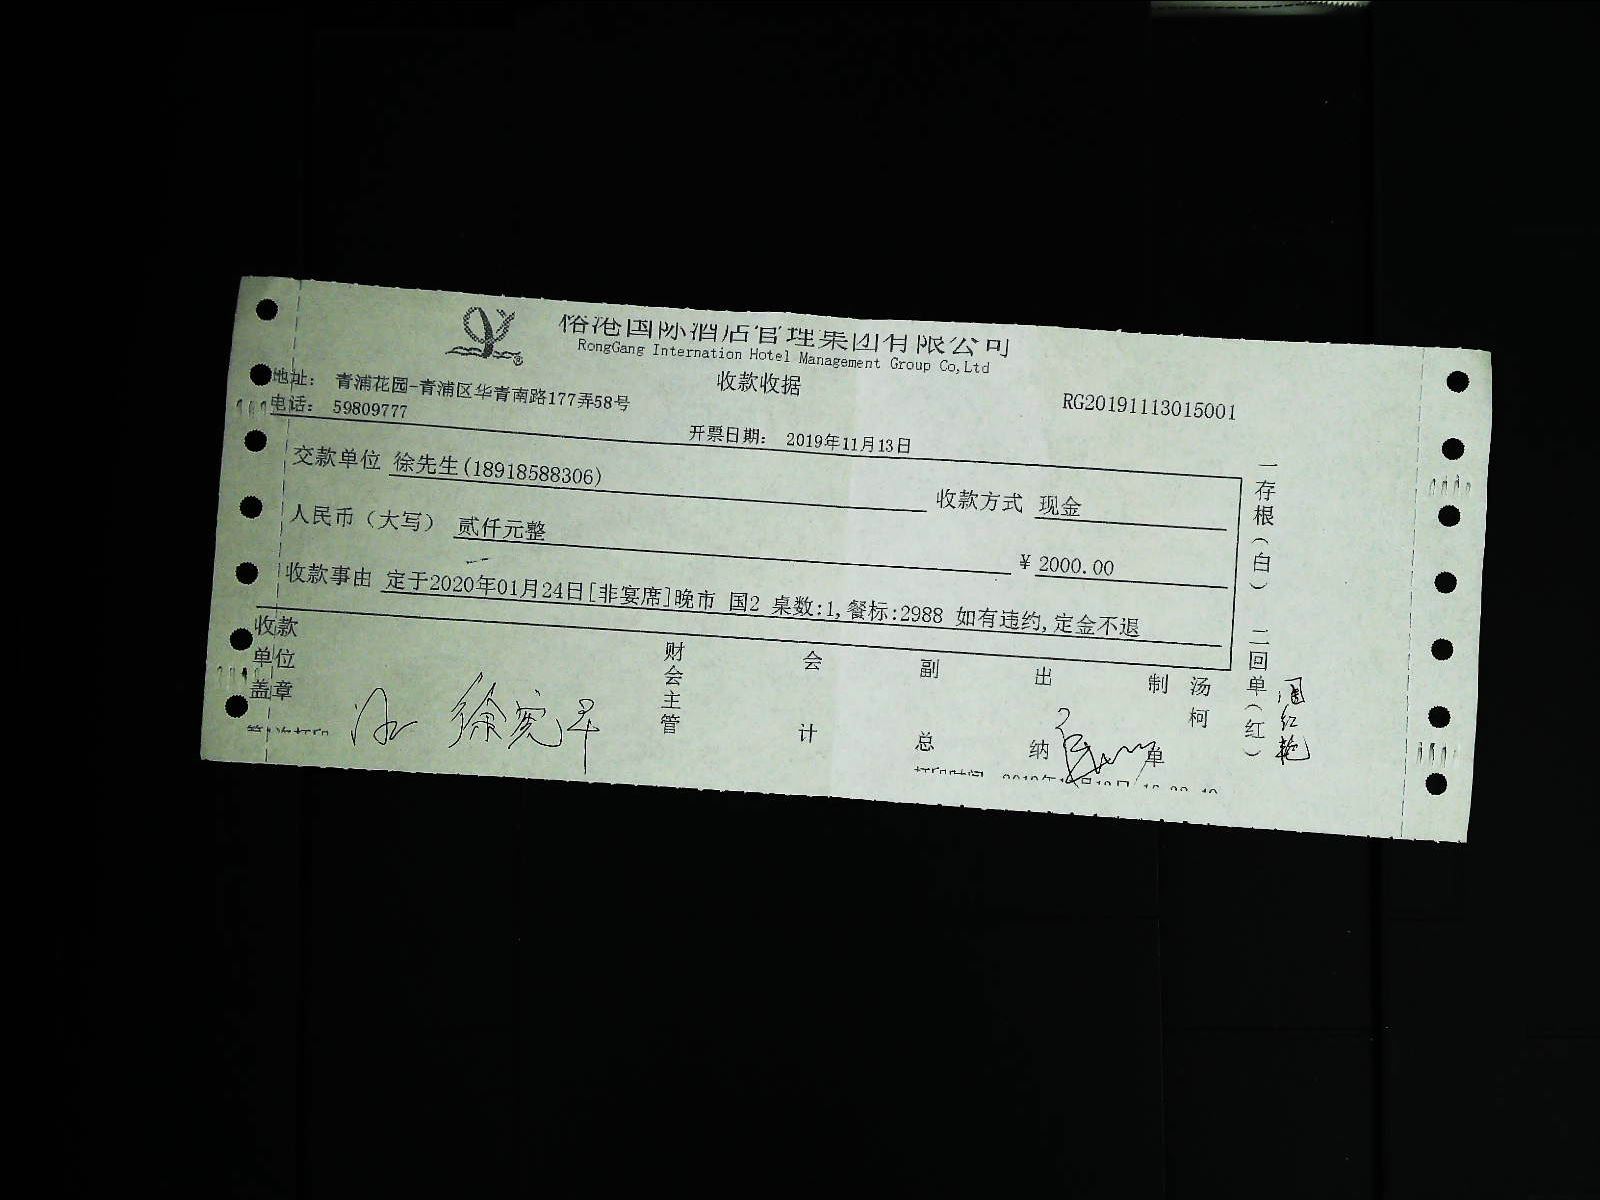 国际酒店管理集团有限公司
RongGang Internation Hotel Management Group Co,Ltd
收款收据
地址: 青浦花园-青浦区华青南路177弄58号
RG20191113015001
电话: 59809777
开票日期: 2019年11月13日
交款单位 徐先生(18918588306)
收款方式 现金
人民币（大写） 贰仟元整
¥ 2000.00
收款事由 定于2020年01月24日[非宴席]晚市 国2 桌数:1,餐标:2988 如有违约,定金不退
收款单位盖章
财会主管
会计
副总
出纳
制单
汤柯
一存根(白)
二回单(红)